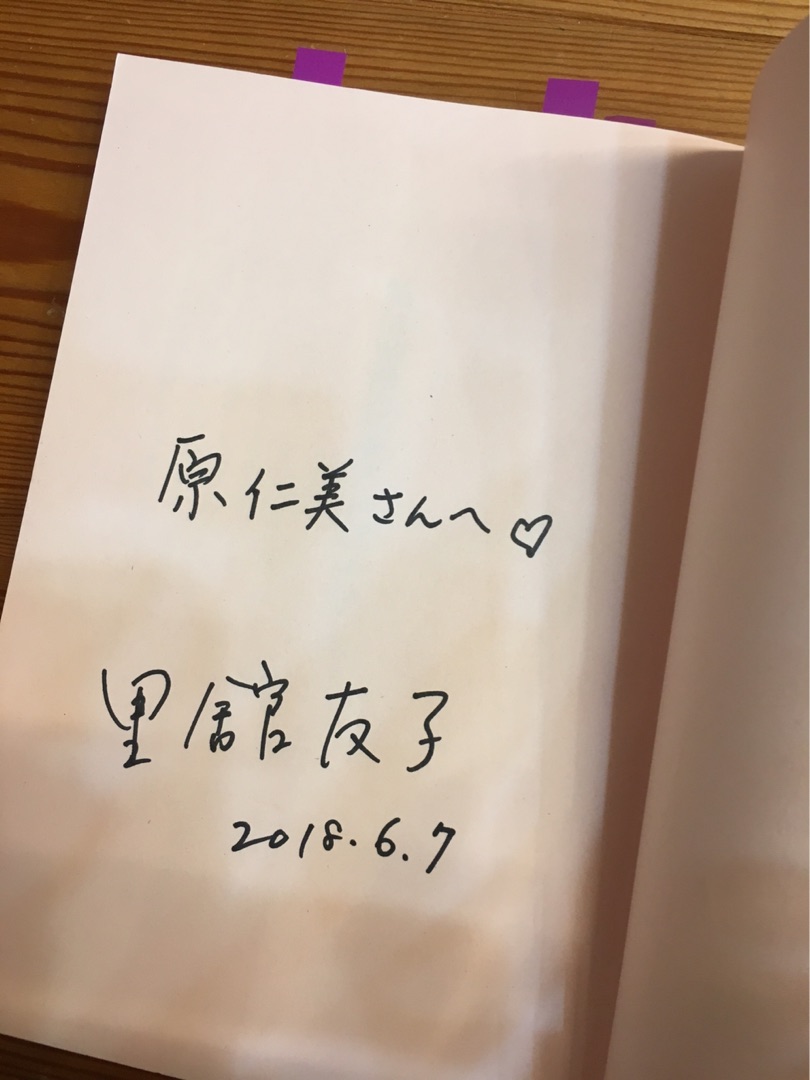 原仁美さんへ♡
里舘友子
2018.6.7